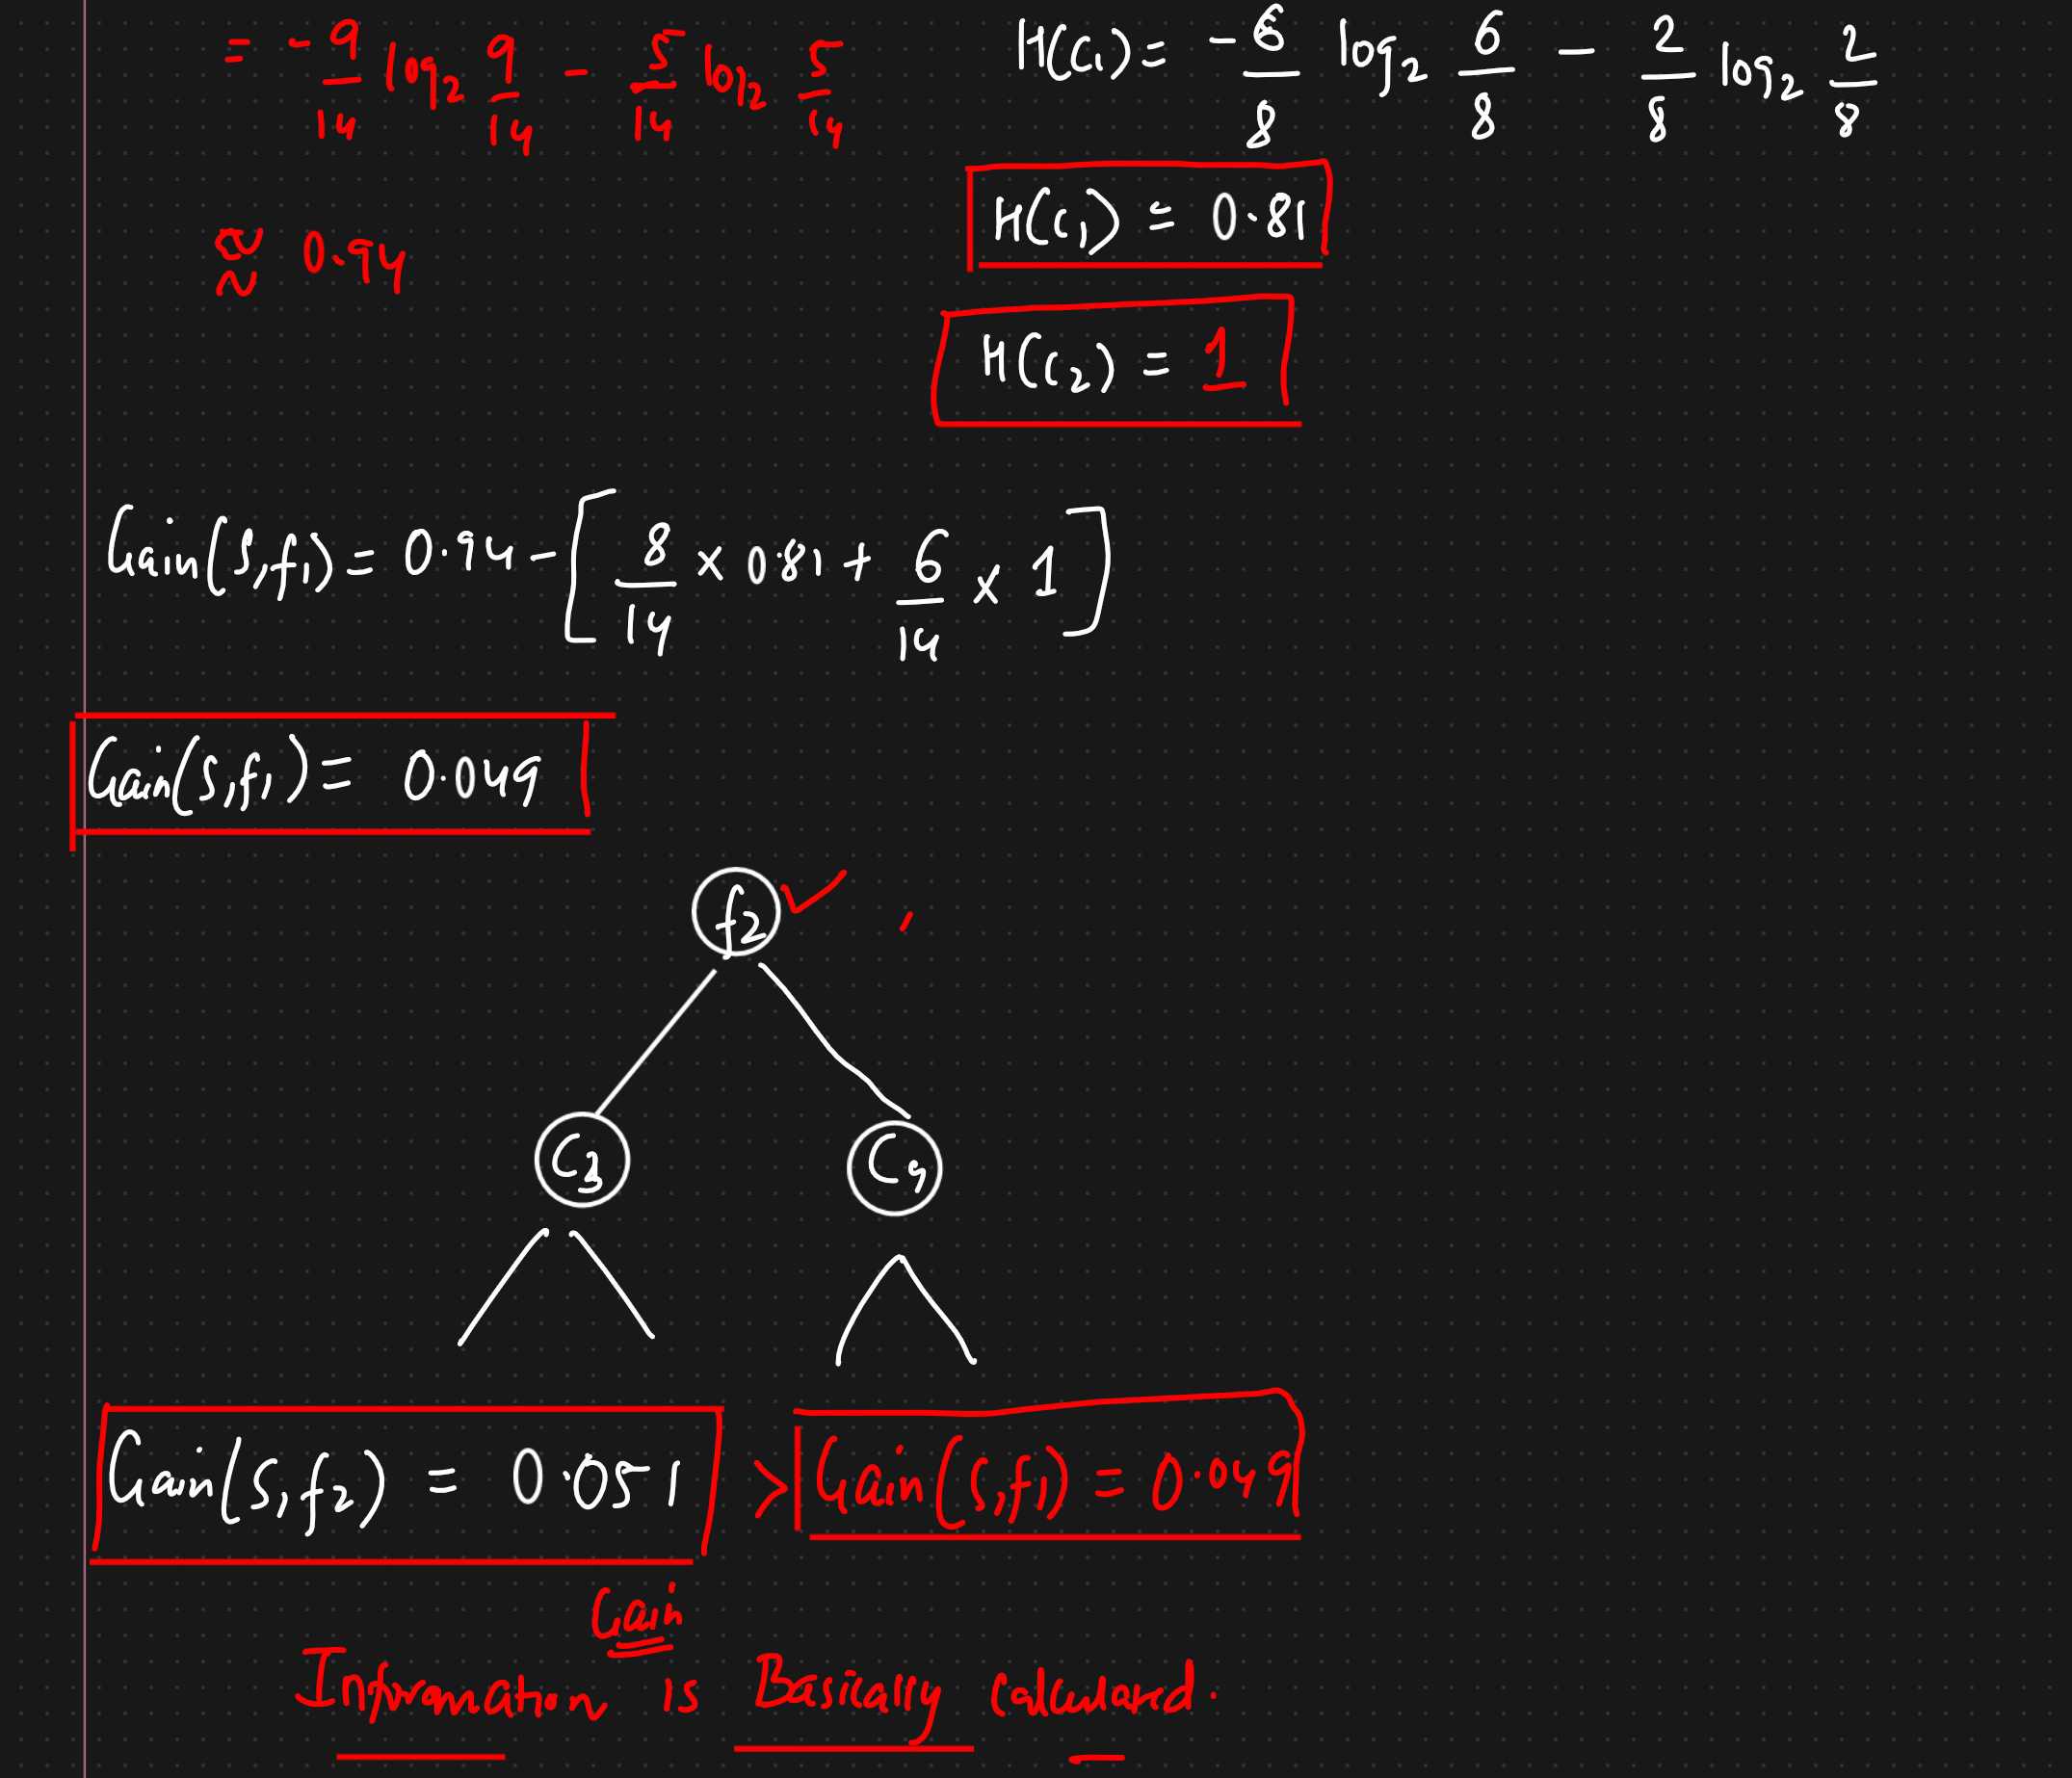 = - 9/14 log₂ 9/14 - 5/14 log₂ 5/14
H(C₁) = - 6/8 log₂ 6/8 - 2/8 log₂ 2/8
≈ 0.94
H(C₁) = 0.81
H(C₂) = 1
Gain(S,f₁) = 0.94 - [8/14 × 0.81 + 6/14 × 1]
Gain(S,f₁) = 0.049
f2
C3
C4
Gain(S,f₂) = 0.051 > Gain(S,f₁) = 0.049
Gain
Information is Basically Calculated.